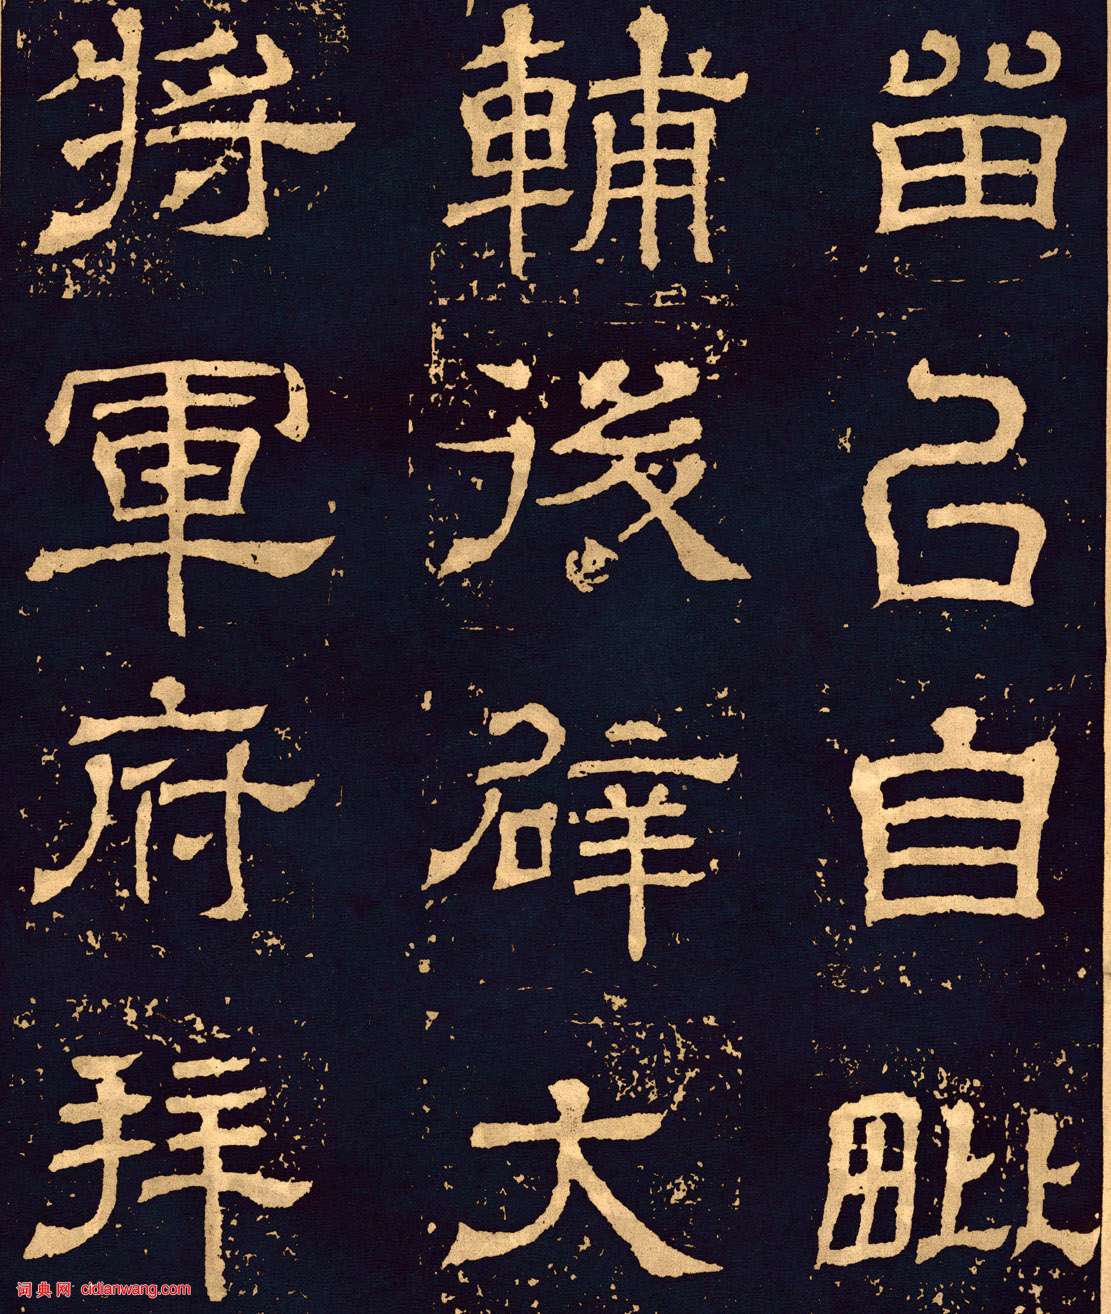 留㠯自毗
輔後辟大
將軍府拜
词典网 cidianwang.com